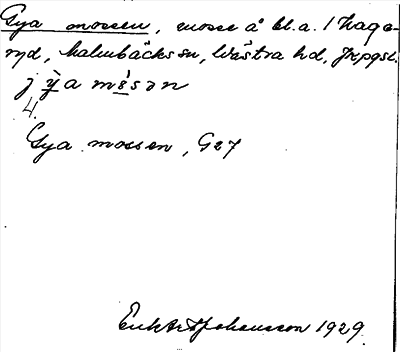 Gya mossen, mosse å bl.a. 1 Haga-
ryd, Malmbäcks sn, Västra hd, Jkpgsl.
j ỳ̤ a m è̤ s ə n
4.
Gya mossen, G27
Erik Abr. Johansson 1929.